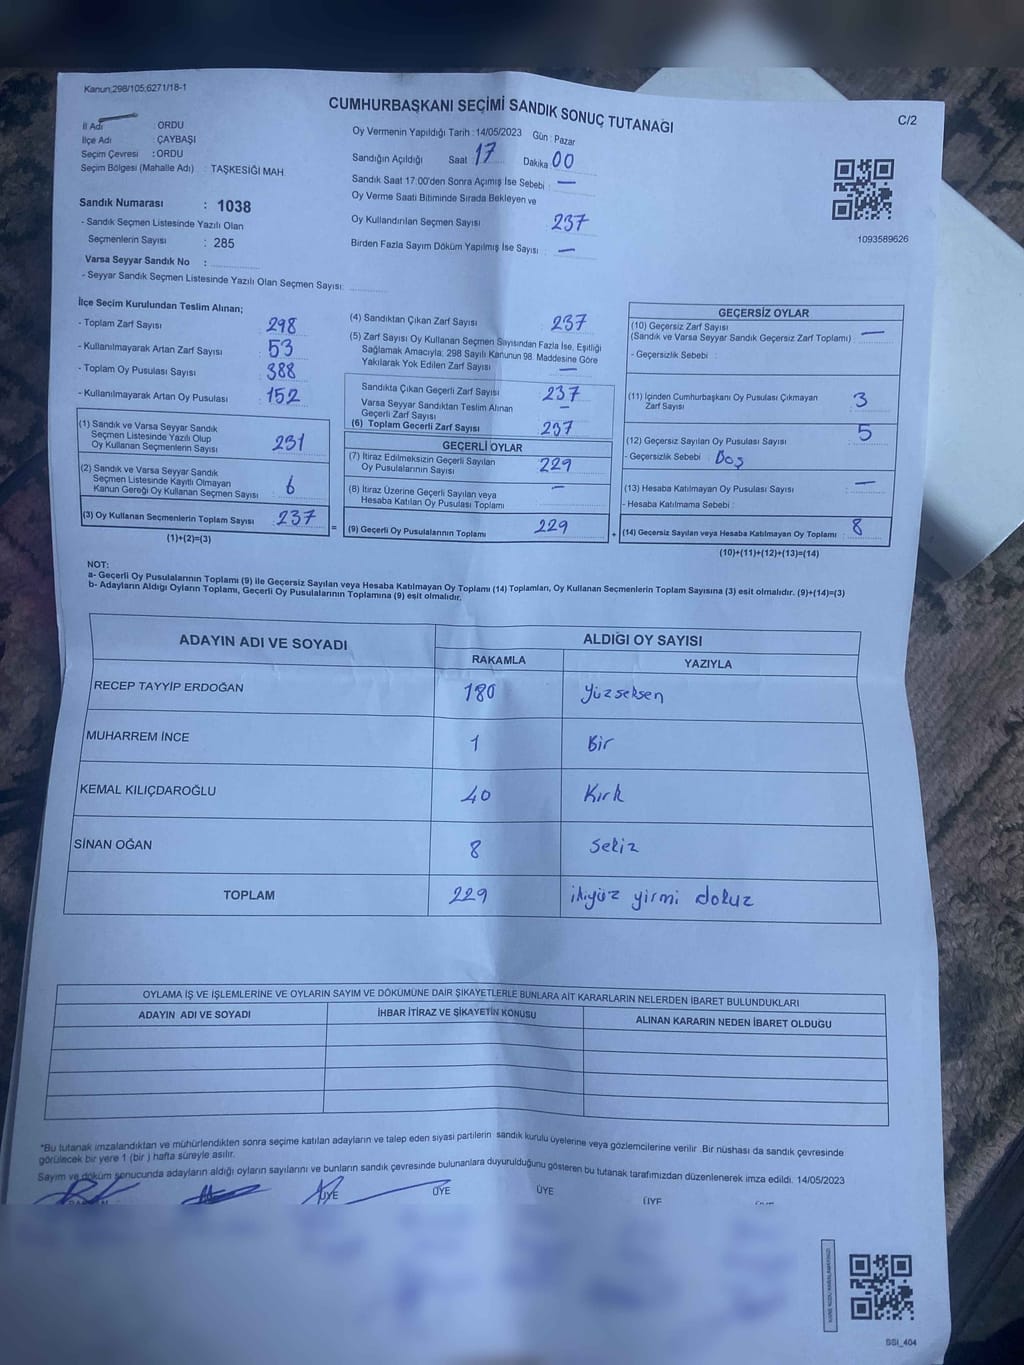 Kanun:298/105,6271/18-1
CUMHURBAŞKANI SEÇİMİ SANDIK SONUÇ TUTANAĞI
C/2
İl Adı : ORDU
İlçe Adı : ÇAYBAŞI
Seçim Çevresi : ORDU
Seçim Bölgesi (Mahalle Adı) : TAŞKESİĞİ MAH.
Sandık Numarası : 1038
- Sandık Seçmen Listesinde Yazılı Olan
Seçmenlerin Sayısı : 285
Varsa Seyyar Sandık No :
- Seyyar Sandık Seçmen Listesinde Yazılı Olan Seçmen Sayısı:
Oy Vermenin Yapıldığı Tarih : 14/05/2023 Gün : Pazar
Sandığın Açıldığı Saat 17 Dakika 00
Sandık Saat 17:00'den Sonra Açımış İse Sebebi : —
Oy Verme Saati Bitiminde Sırada Bekleyen ve
Oy Kullandırılan Seçmen Sayısı 237
Birden Fazla Sayım Döküm Yapılmış İse Sayısı : —
1093589626
İlçe Seçim Kurulundan Teslim Alınan;
- Toplam Zarf Sayısı : 298
- Kullanılmayarak Artan Zarf Sayısı : 53
- Toplam Oy Pusulası Sayısı : 388
- Kullanılmayarak Artan Oy Pusulası : 152
(1) Sandık ve Varsa Seyyar Sandık
Seçmen Listesinde Yazılı Olup
Oy Kullanan Seçmenlerin Sayısı 231
(2) Sandık ve Varsa Seyyar Sandık
Seçmen Listesinde Kayıtlı Olmayan
Kanun Gereği Oy Kullanan Seçmen Sayısı 6
(3) Oy Kullanan Seçmenlerin Toplam Sayısı 237
(1)+(2)=(3)
(4) Sandıktan Çıkan Zarf Sayısı 237
(5) Zarf Sayısı Oy Kullanan Seçmen Sayısından Fazla İse, Eşitliği
Sağlamak Amacıyla; 298 Sayılı Kanunun 98. Maddesine Göre
Yakılarak Yok Edilen Zarf Sayısı —
Sandıkta Çıkan Geçerli Zarf Sayısı 237
Varsa Seyyar Sandıktan Teslim Alınan
Geçerli Zarf Sayısı —
(6) Toplam Geçerli Zarf Sayısı 237
GEÇERLİ OYLAR
(7) İtiraz Edilmeksizin Geçerli Sayılan
Oy Pusulalarının Sayısı 229
(8) İtiraz Üzerine Geçerli Sayılan veya
Hesaba Katılan Oy Pusulası Toplamı —
= (9) Geçerli Oy Pusulalarının Toplamı 229
GEÇERSİZ OYLAR
(10) Geçersiz Zarf Sayısı
(Sandık ve Varsa Seyyar Sandık Geçersiz Zarf Toplamı) : —
- Geçersizlik Sebebi :
(11) İçinden Cumhurbaşkanı Oy Pusulası Çıkmayan
Zarf Sayısı 3
(12) Geçersiz Sayılan Oy Pusulası Sayısı 5
- Geçersizlik Sebebi : Boş
(13) Hesaba Katılmayan Oy Pusulası Sayısı —
- Hesaba Katılmama Sebebi :
+ (14) Geçersiz Sayılan veya Hesaba Katılmayan Oy Toplamı 8
(10)+(11)+(12)+(13)=(14)
NOT:
a- Geçerli Oy Pusulalarının Toplamı (9) ile Geçersiz Sayılan veya Hesaba Katılmayan Oy Toplamı (14) Toplamları, Oy Kullanan Seçmenlerin Toplam Sayısına (3) eşit olmalıdır. (9)+(14)=(3)
b- Adayların Aldığı Oyların Toplamı, Geçerli Oy Pusulalarının Toplamına (9) eşit olmalıdır.
ADAYIN ADI VE SOYADI ALDIĞI OY SAYISI
RAKAMLA YAZIYLA
RECEP TAYYİP ERDOĞAN 180 Yüzseksen
MUHARREM İNCE 1 Bir
KEMAL KILIÇDAROĞLU 40 Kırk
SİNAN OĞAN 8 Sekiz
TOPLAM 229 ikiyüz yirmi dokuz
OYLAMA İŞ VE İŞLEMLERİNE VE OYLARIN SAYIM VE DÖKÜMÜNE DAİR ŞİKAYETLERLE BUNLARA AİT KARARLARIN NELERDEN İBARET BULUNDUKLARI
ADAYIN ADI VE SOYADI İHBAR İTİRAZ VE ŞİKAYETİN KONUSU ALINAN KARARIN NEDEN İBARET OLDUĞU
*Bu tutanak imzalandıktan ve mühürlendikten sonra seçime katılan adayların ve talep eden siyasi partilerin sandık kurulu üyelerine veya gözlemcilerine verilir. Bir nüshası da sandık çevresinde
görülecek bir yere 1 (bir ) hafta süreyle asılır.
Sayım ve döküm sonucunda adayların aldığı oyların sayılarını ve bunların sandık çevresinde bulunanlara duyurulduğunu gösteren bu tutanak tarafımızdan düzenlenerek imza edildi. 14/05/2023
ÜYE ÜYE ÜYE ÜYE
SSI_404